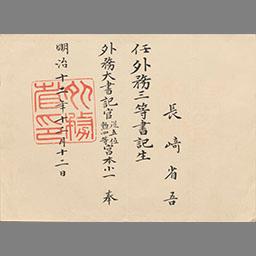 長﨑省吾
任外務三等書記生
外務大書記官従五位勲四等宮本小一奉
明治十二年十二月十二日
外務省印